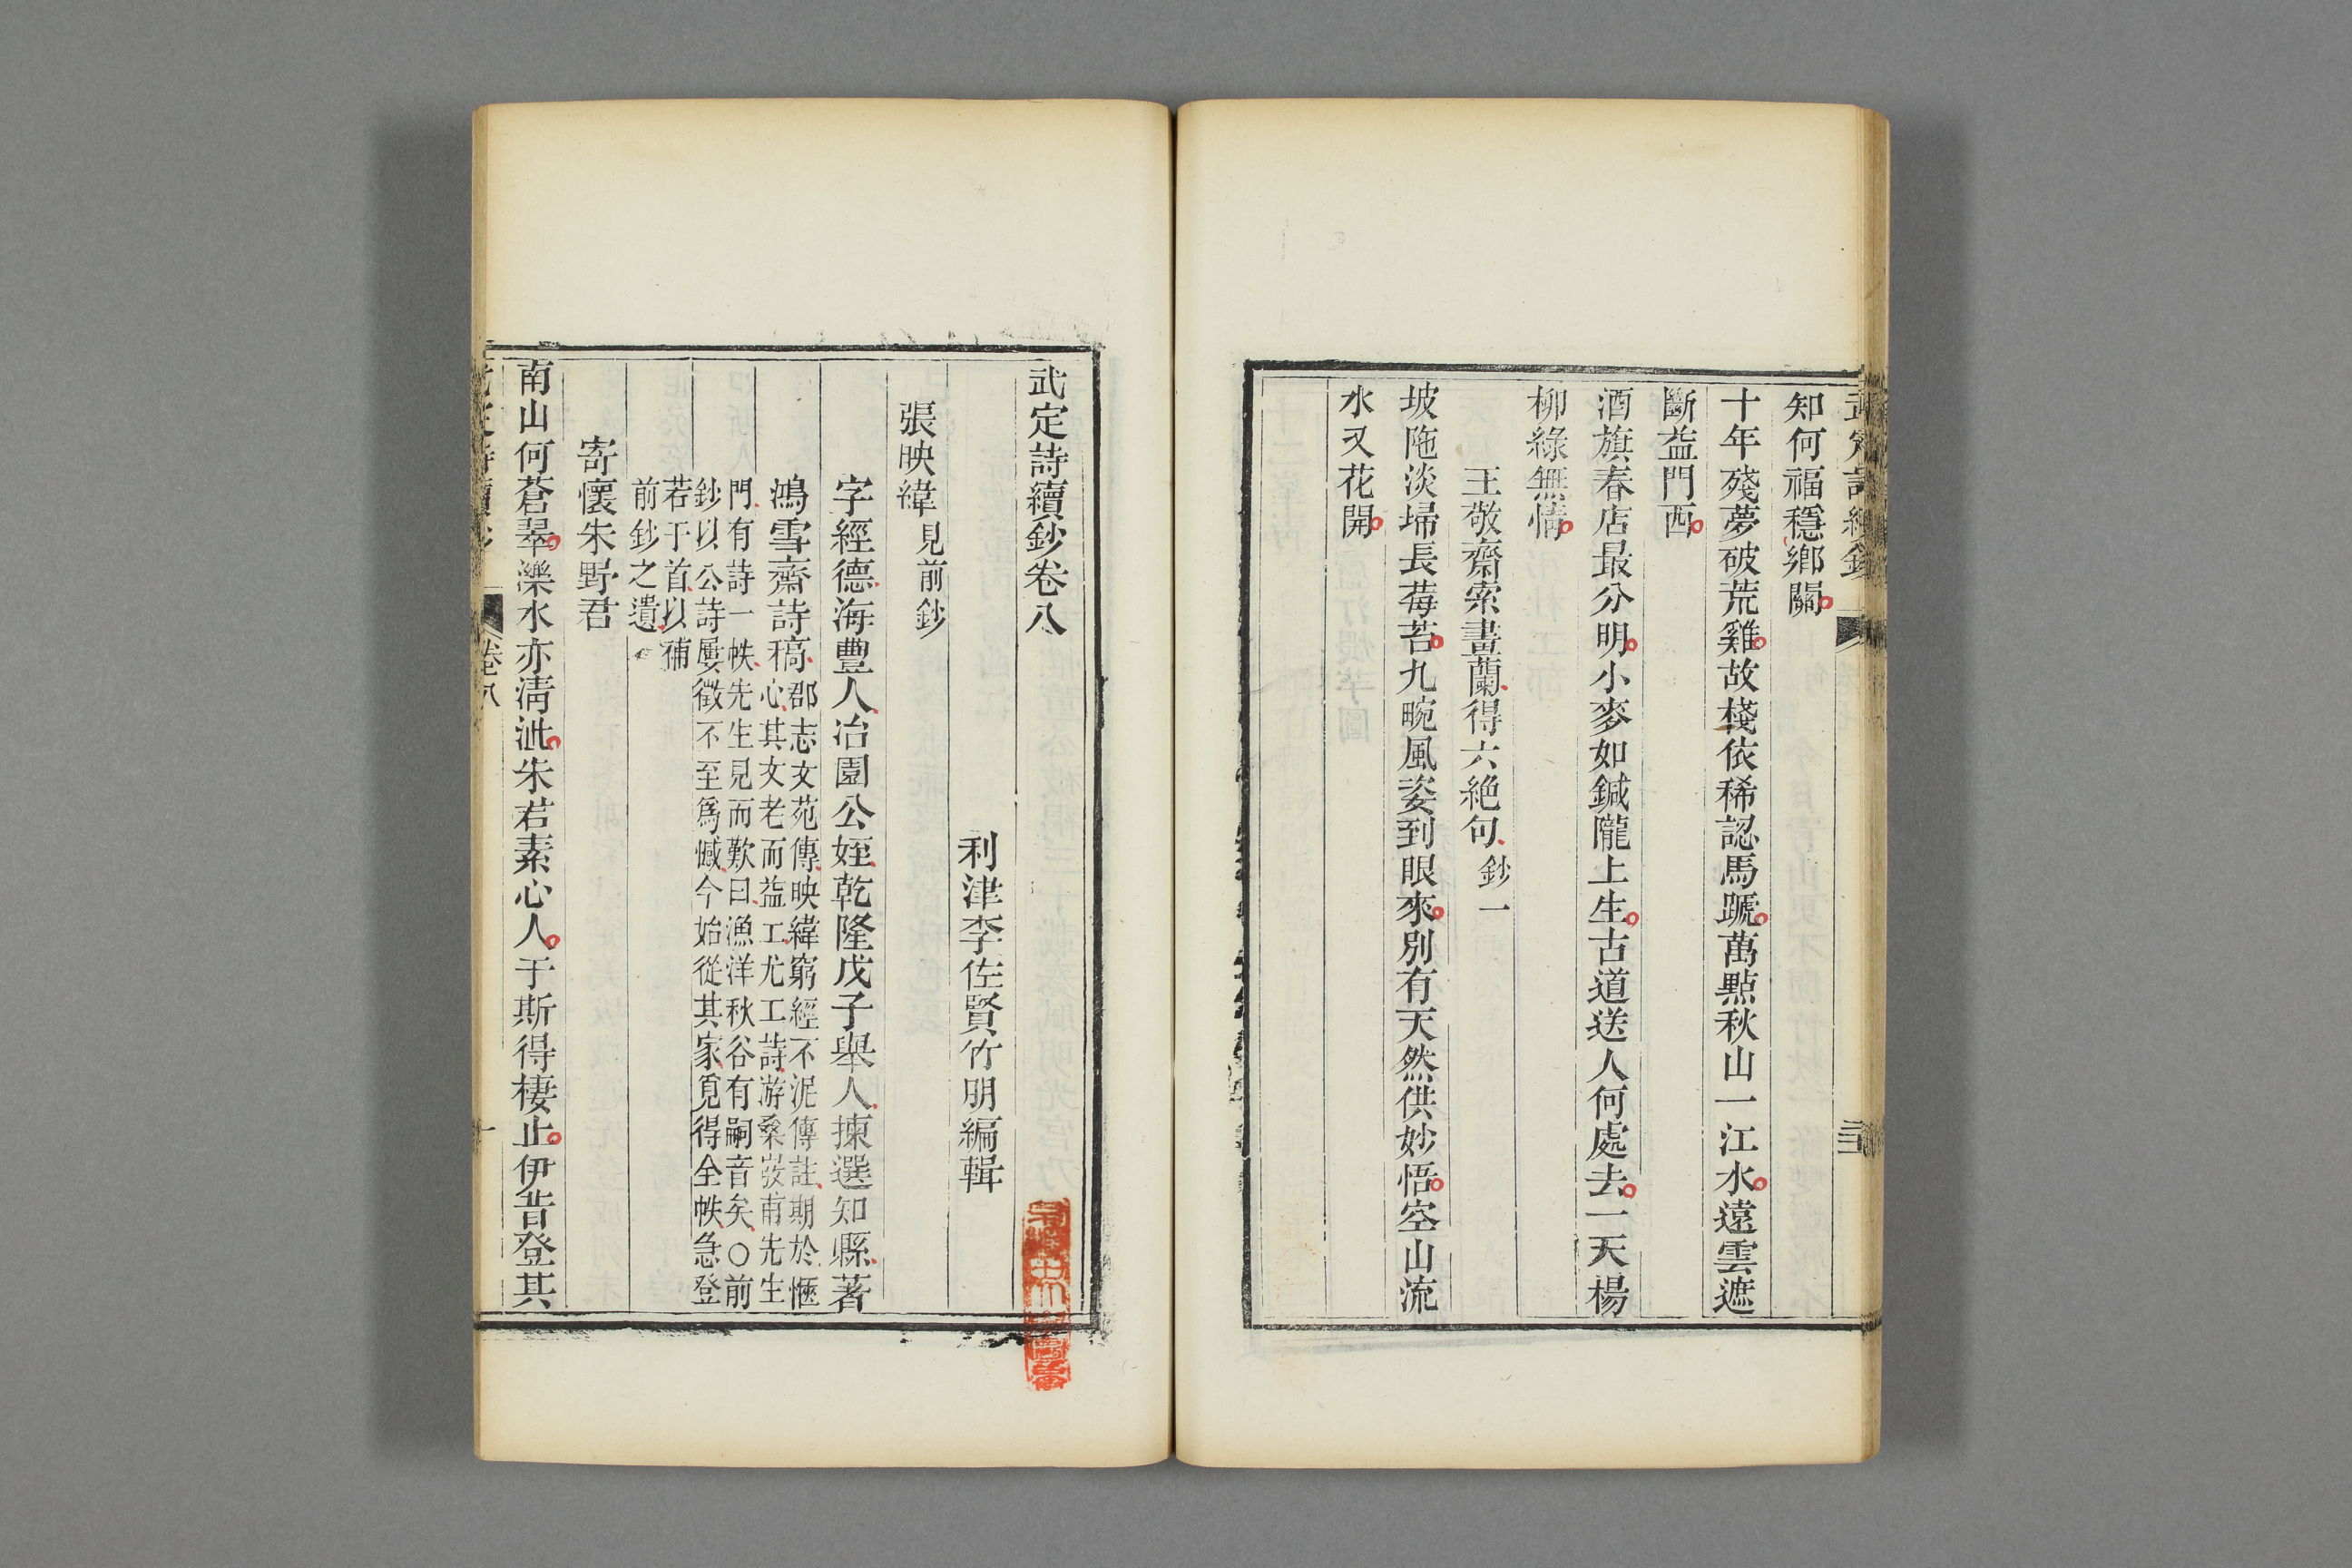 知何福穩鄉關
十年殘夢破荒雞故棧依稀認馬蹏萬點秋山一江水遠雲遮
斷益門西
酒旗春店最分明小麥如鍼隴上生古道送人何處去一天楊
柳綠無情
王敬齋索畫蘭得六絕句鈔一
坡陁淡埽長莓苔九畹風姿到眼來別有天然供妙悟空山流
水又花開
武定詩續鈔卷八
利津李佐賢竹朋編輯
張映緯見前鈔
字經德海豐人冶園公姪乾隆戊子舉人揀選知縣著
鴻雪齋詩稿
郡志文苑傳映緯窮經不泥傳註期於愜
心其文老而益工尤工詩游桑弢甫先生
門有詩一帙先生見而歎曰漁洋秋谷有嗣音矣○前
鈔以公詩屢徵不至爲憾今始從其家覓得全帙急登
若干首以補
前鈔之遺
寄懷朱野君
南山何蒼翠濼水亦清泚朱君素心人于斯得棲止伊昔登其
卷八